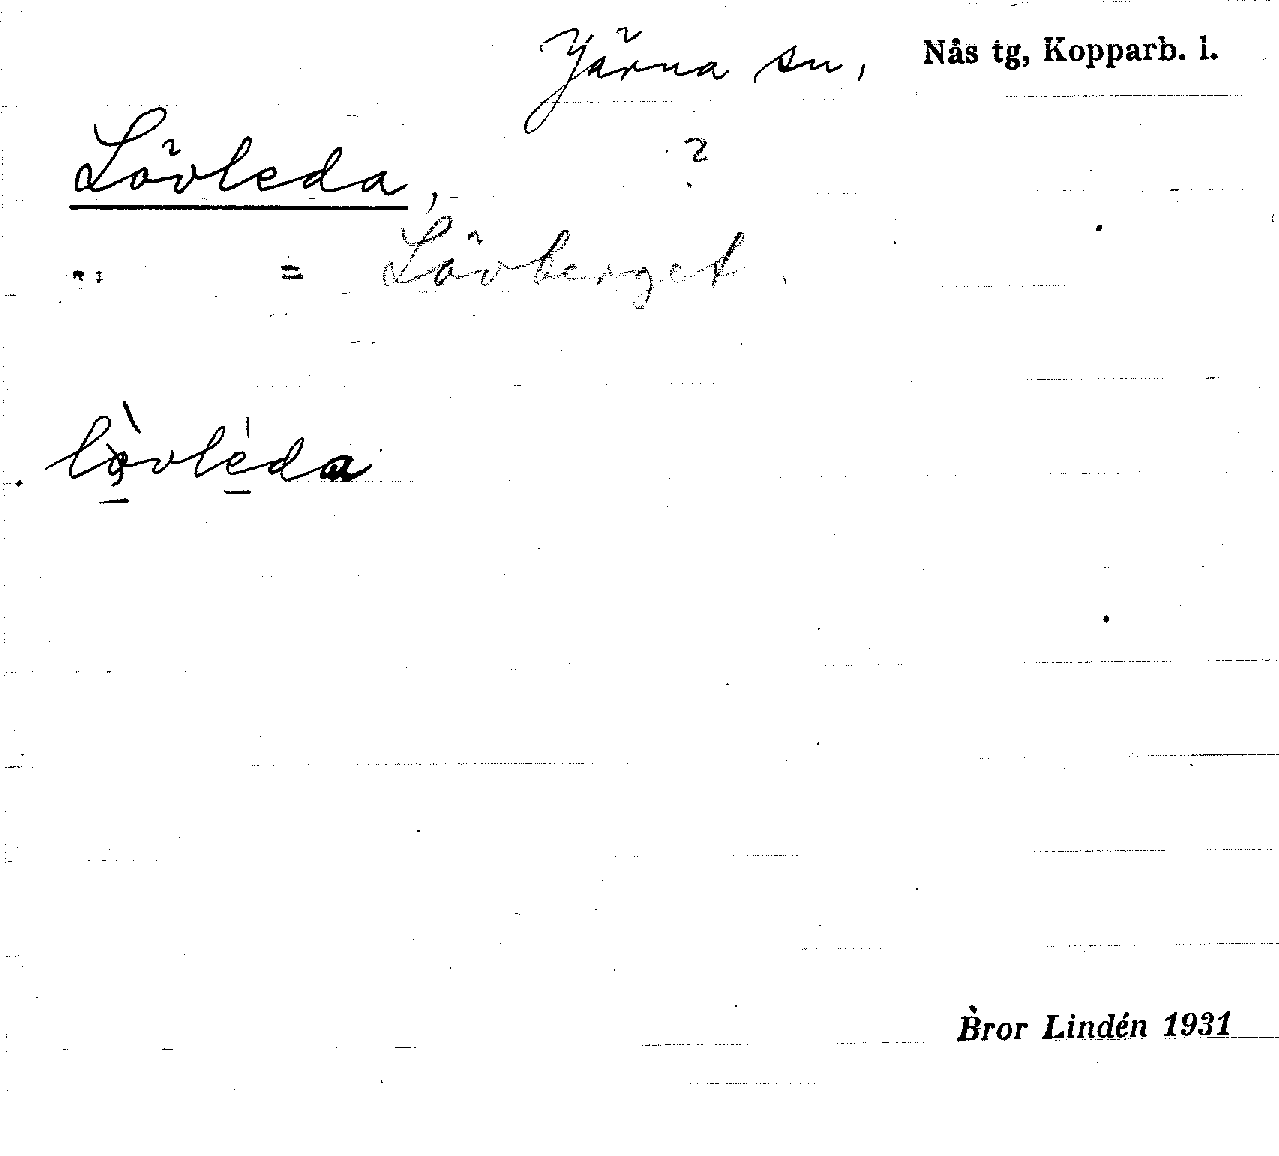 Järna sn, Nås tg, Kopparb. l.
Lövleda, ?
": = Lövberget.
lö̀vléda
Bror Lindén 1931